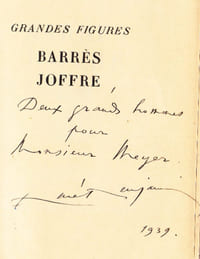 GRANDES FIGURES
BARRÈS
JOFFRE
Deux grands hommes
pour
Monsieur Meyer.
1939.